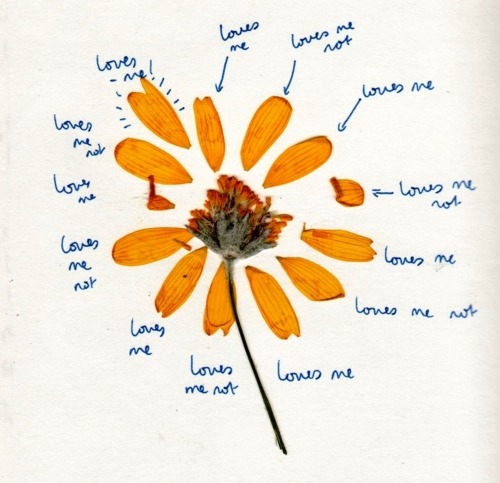 loves
me
loves me
not
loves me
loves me
not
loves me
loves me not
loves me
loves
me not
loves
me
loves
me
not
loves
me
loves
me
not
loves
me!